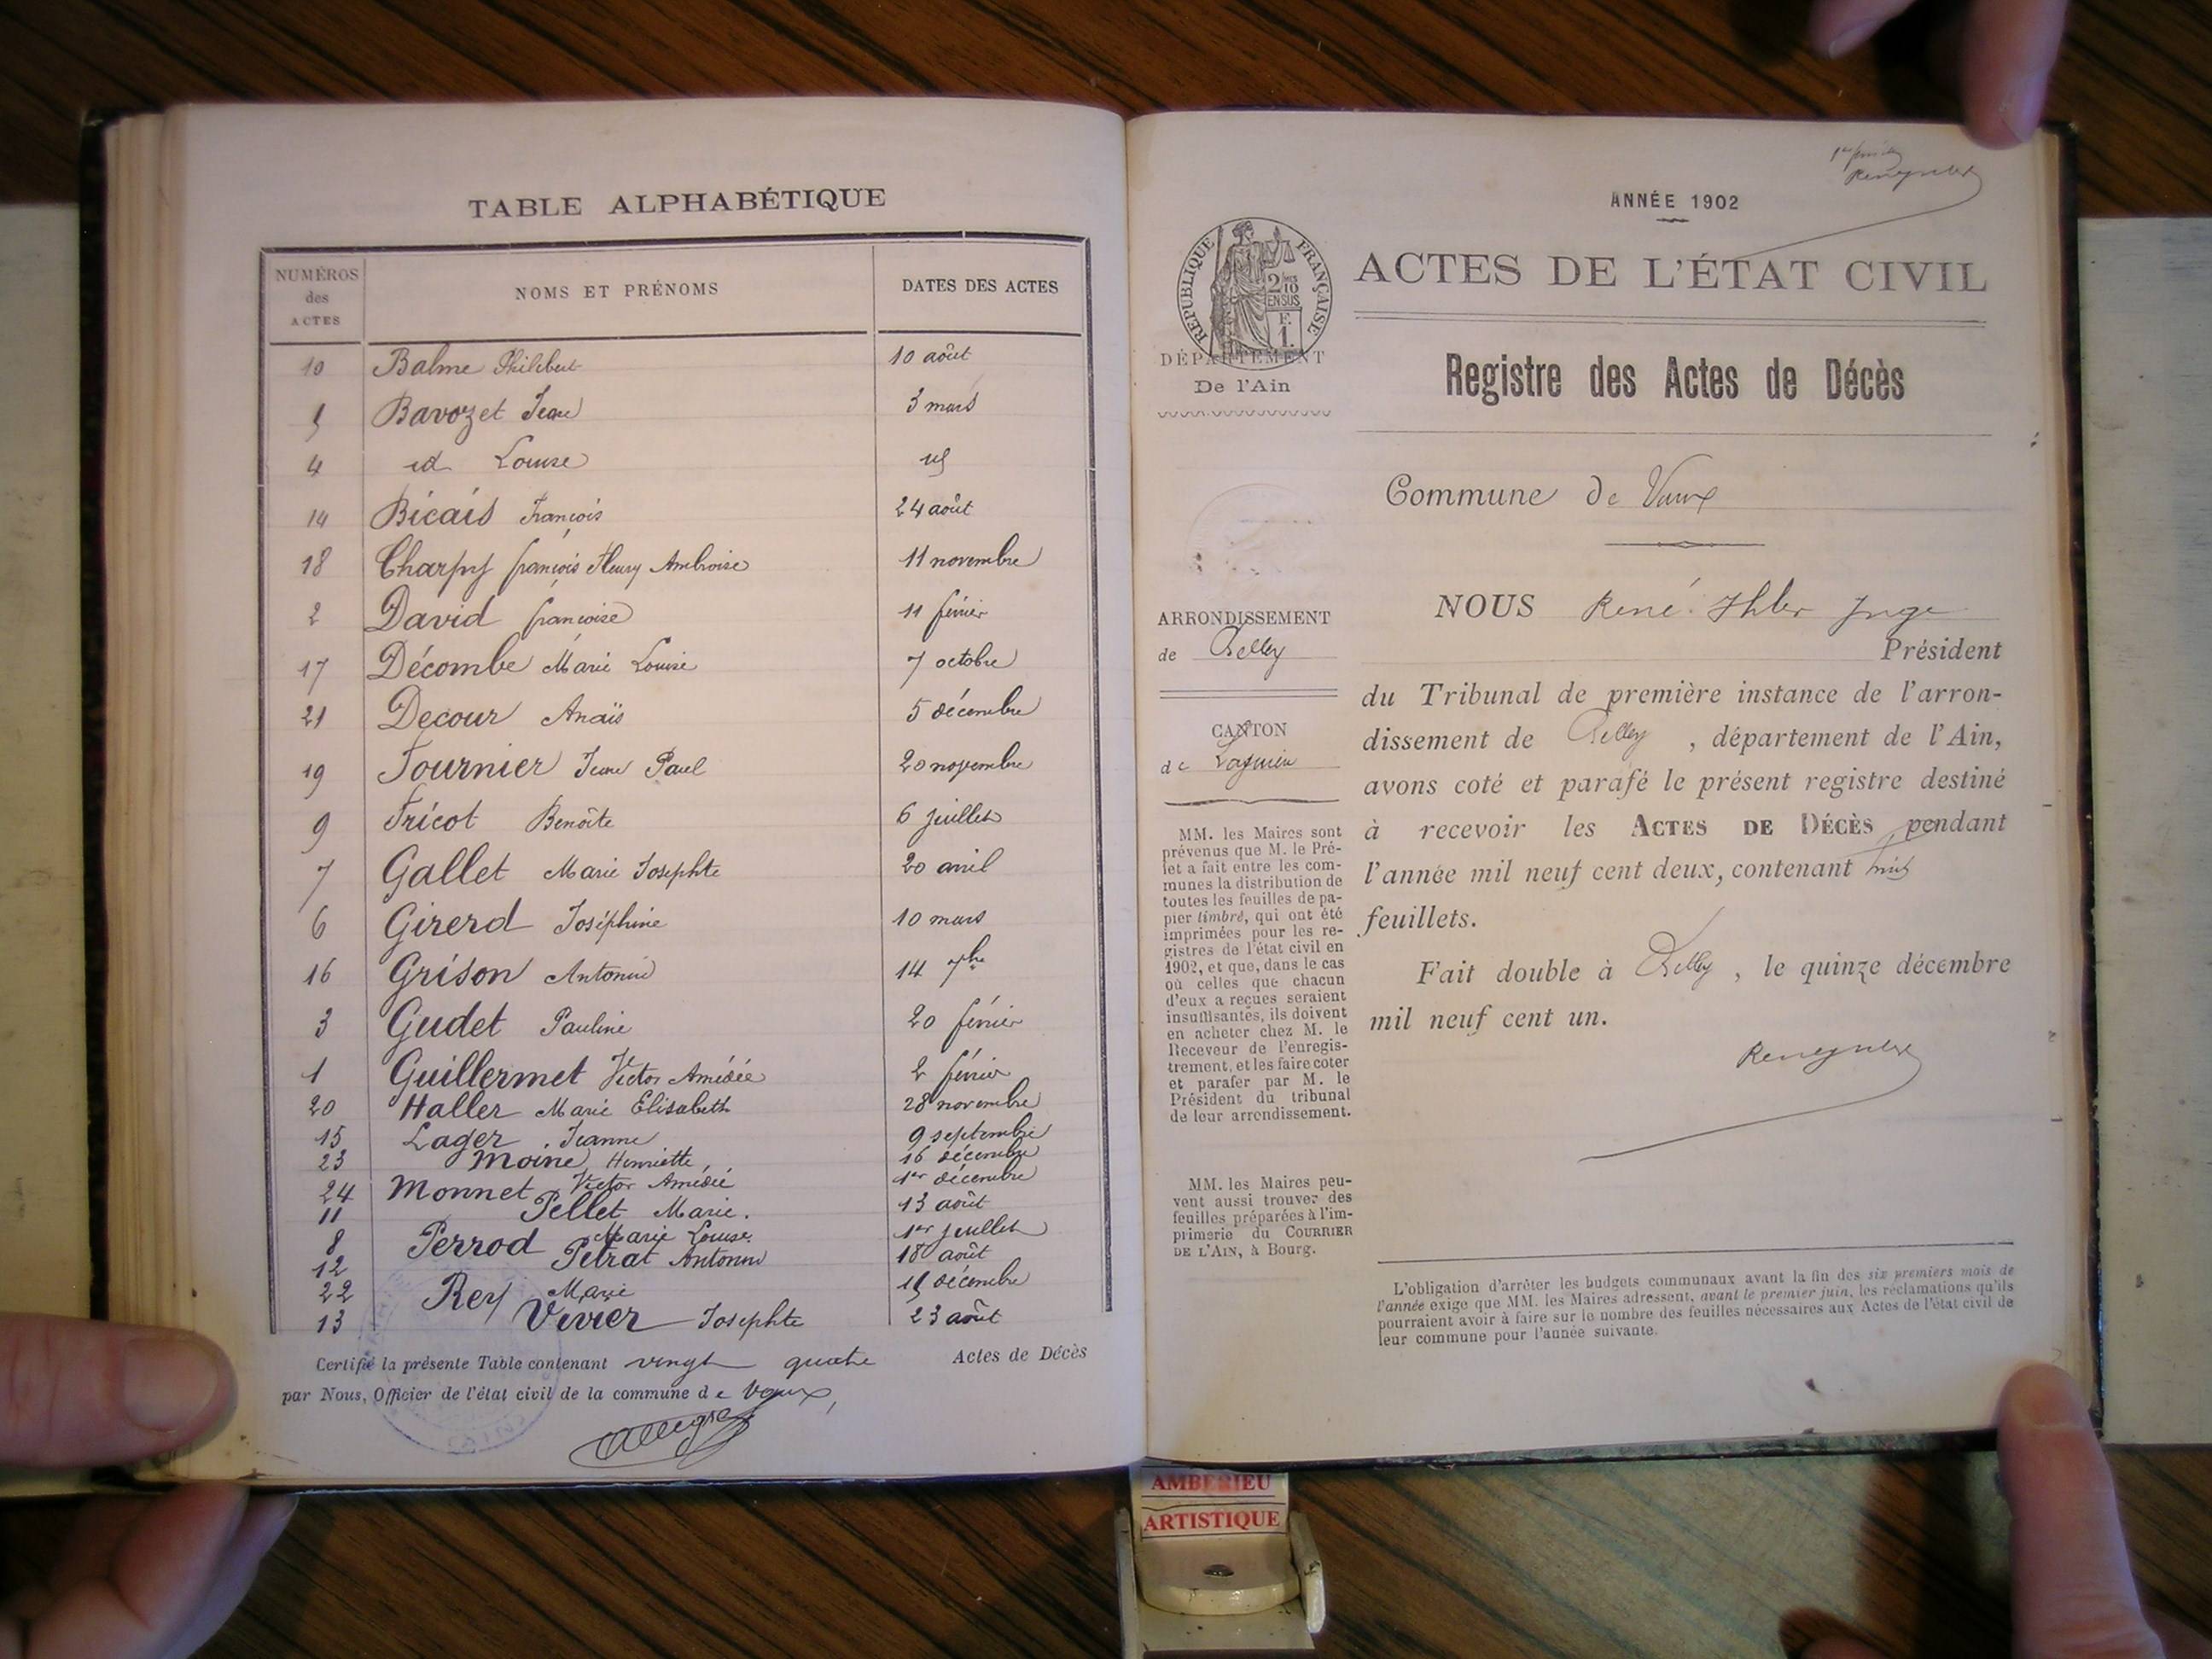 TABLE ALPHABÉTIQUE
NUMÉROS des ACTES NOMS ET PRÉNOMS DATES DES ACTES
10 Balme Philibert 10 août
5 Bavozet Jean 3 mars
4 id Louise
14 Bicais François 24 août
18 Charpy françois Fleury Ambroise 11 novembre
2 David françoise 11 février
17 Décombe Marie Louise 7 octobre
21 Decour Anaïs 5 décembre
19 Fournier Jean Paul 20 novembre
9 Fricot Benoîte 6 juillet
7 Gallet Marie Josephte 20 avril
6 Girerd Joséphine 10 mars
16 Grison Antonin 14 7bre
3 Gudet Pauline 20 février
1 Guillermet Victor Amédée 2 février
20 Haller Marie Elisabeth 28 novembre
15 Lager Jeanne 9 septembre
23 Moine Henriette 16 décembre
24 Monnet Victor Amédée 1er décembre
11 Pellet Marie. 13 août
8 Perrod Marie Louise. 1er juillet
12 Petrat Antonin 18 août
22 Rey Marie 15 décembre
13 Vivier Josephte 23 août
Certifié la présente Table contenant vingt quatre Actes de Décès
par Nous, Officier de l'état civil de la commune de Vaux,
ANNÉE 1902
RÉPUBLIQUE FRANÇAISE
2/10 EN SUS
F. 1.
ACTES DE L'ÉTAT CIVIL
DÉPARTEMENT
De l'Ain
Registre des Actes de Décès
Commune de Vaux
ARRONDISSEMENT
de Belley
CANTON
de Lagnieu
NOUS René Ihler Juge
Président
du Tribunal de première instance de l'arron-
dissement de Belley, département de l'Ain,
avons coté et paráfé le présent registre destiné
à recevoir les ACTES DE DÉCÈS pendant
l'année mil neuf cent deux, contenant huit
feuillets.
Fait double à Belley, le quinze décembre
mil neuf cent un.
MM. les Maires sont
prévenus que M. le Pré-
fet a fait entre les com-
munes la distribution de
toutes les feuilles de pa-
pier timbré, qui ont été
imprimées pour les re-
gistres de l'état civil en
1902, et que, dans le cas
où celles que chacun
d'eux a reçues seraient
insuffisantes, ils doivent
en acheter chez M. le
Receveur de l'enregis-
trement, et les faire coter
et parafer par M. le
Président du tribunal
de leur arrondissement.
MM. les Maires peu-
vent aussi trouver des
feuilles préparées à l'im-
primerie du COURRIER
DE L'AIN, à Bourg.
L'obligation d'arrêter les budgets communaux avant la fin des six premiers mois de
l'année exige que MM. les Maires adressent, avant le premier juin, les réclamations qu'ils
pourraient avoir à faire sur le nombre des feuilles nécessaires aux Actes de l'état civil de
leur commune pour l'année suivante.
AMBERIEU
ARTISTIQUE